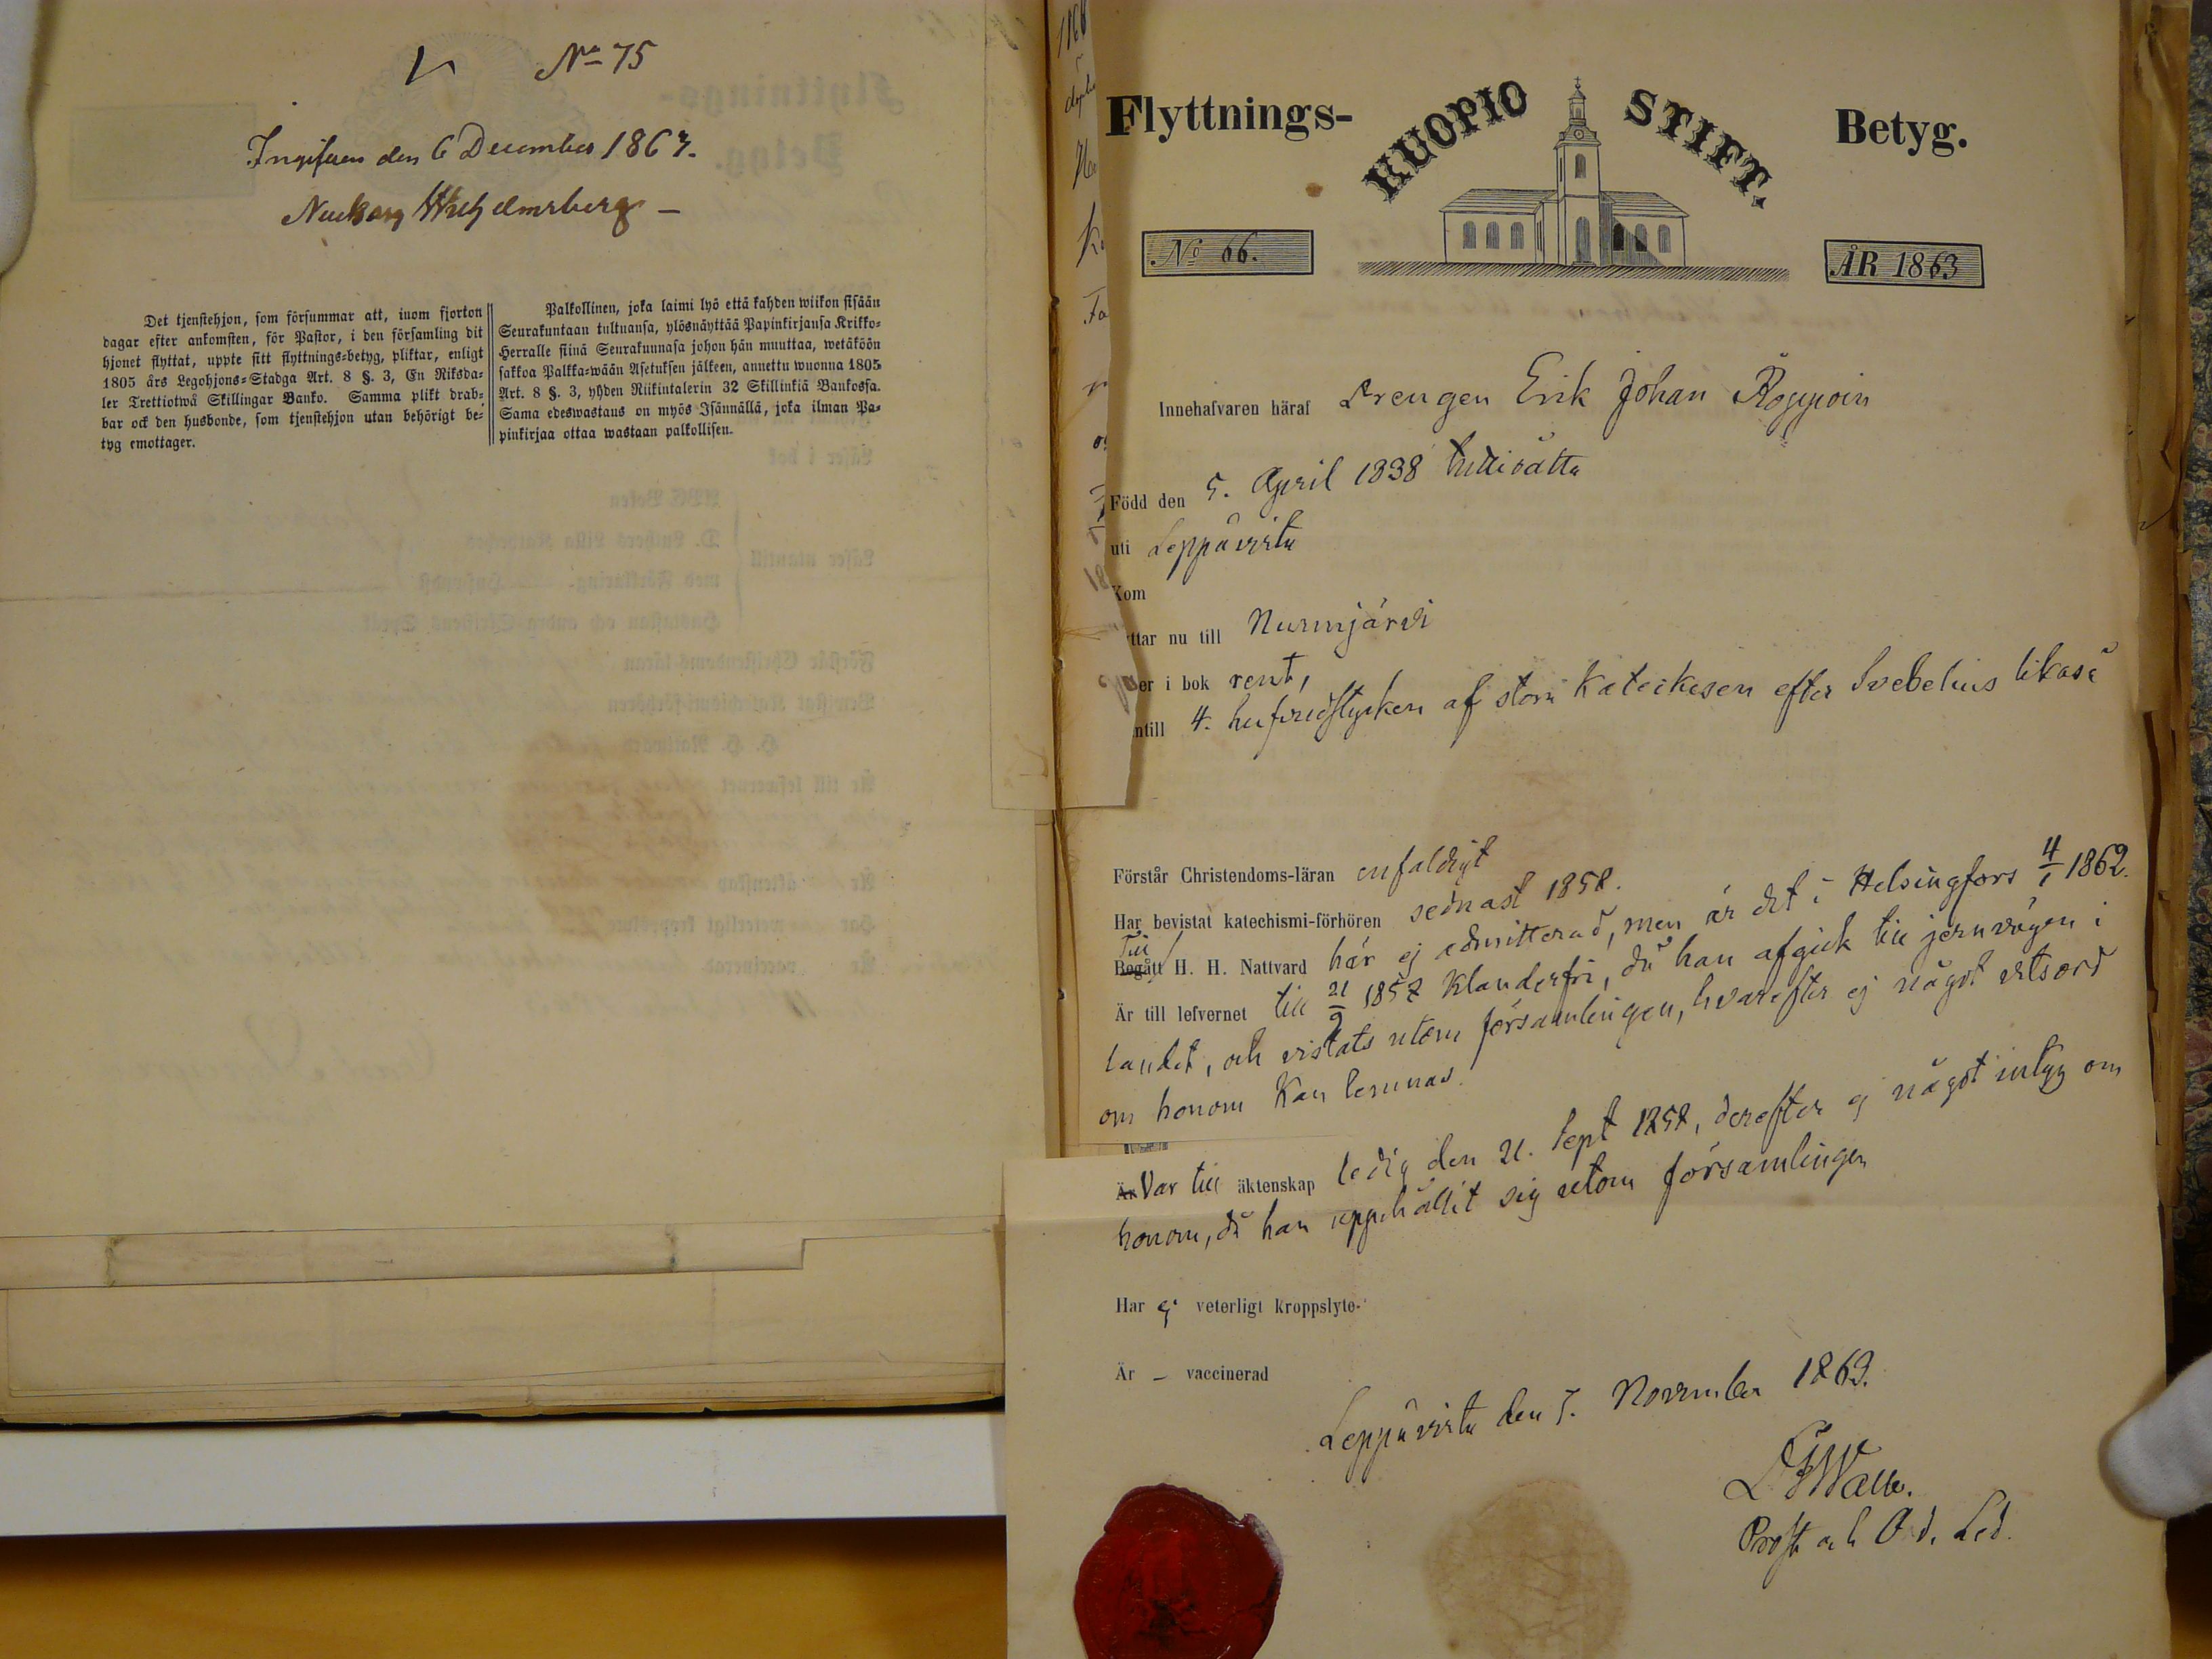 No 75
den 6 December 1867.
Det tjenstehjon, som försummar att, inom fjorton
dagar efter ankomsten, för Pastor, i den församling dit
hjonet flyttat, uppte sitt flyttnings-betyg, pliktar, enligt
1805 års Legohjons-Stadga Art. 8 §. 3, En Riksda-
ler Trettiotwå Skillingar Banko. Samma plikt drab-
bar ock den husbonde, som tjenstehjon utan behörigt be-
tyg emottager.
Palkollinen, joka laimi lyö että kahden wiikon sisään
Seurakuntaan tultuansa, ylösnäyttää Papinkirjansa Krikko-
Herralle siinä Seurakunnasa johon hän muuttaa, wetäköön
sakkoa Palkka-wään Asetuksen jälkeen, annettu wuonna 1805
Art. 8 §. 3, yhden Riikintalerin 32 Skillinkiä Bankossa.
Sama edeswastaus on myös Isännällä, joka ilman Pa-
pinkirjaa ottaa wastaan palkollisen.
Flyttnings- KUOPIO STIFT. Betyg.
No 66. ÅR 1863
Innehafvaren häraf Drengen Erik Johan Röppoin
Född den 5. April 1838
uti Leppävirta
Kom
ttar nu till Nurmijärvi
er i bok rent,
ntill 4. hufvudstycken af stora Katechesen efter Svebelius likaså
Förstår Christendoms-läran enfaldigt
Har bevistat katechismi-förhören sednast 1858.
Till
Begått H. H. Nattvard här ej admitterad, men är det i Helsingfors 4/1 1862.
Är till lefvernet till 21/9 1857 Klanderfri, då han afgick till jernvägen i
landet, och vistats utom församlingen, hvarefter ej något vitsord
om honom Kan lemnas.
Är Var till äktenskap ledig den 21. Sept 1857, derefter ej något intyg om
honom, då han uppehållit sig utom församlingen
Har ej veterligt kroppslyte.
Är – vaccinerad
Leppävirta den 5. November 1863.
Prost och